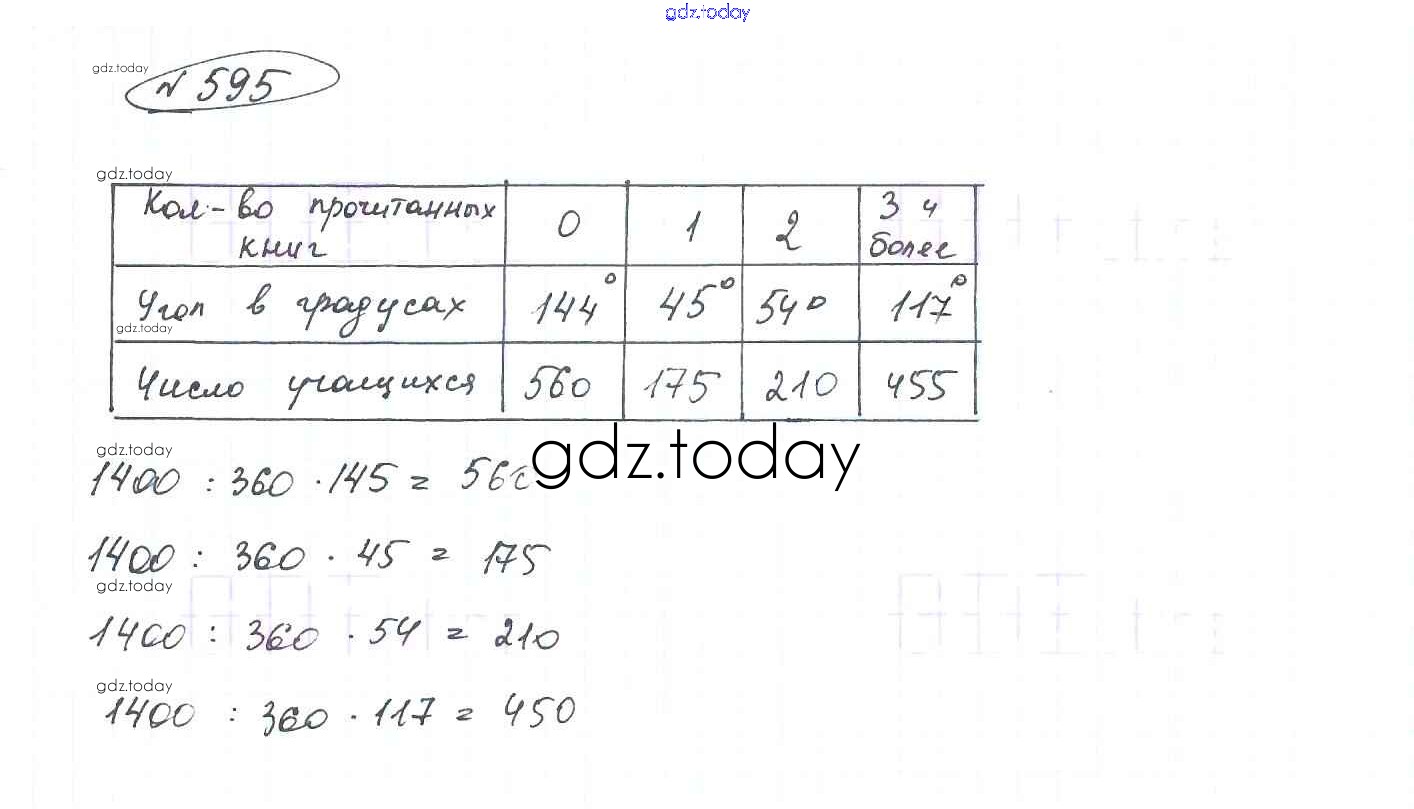 gdz.today
gdz.today
№ 595
gdz.today
Кол-во прочитанных книг 0 1 2 3 и более
Угол в градусах 144° 45° 54° 117°
gdz.today
Число учащихся 560 175 210 455
gdz.today
gdz.today
1400 : 360 · 145 = 560
1400 : 360 · 45 = 175
gdz.today
1400 : 360 · 54 = 210
gdz.today
1400 : 360 · 117 = 450